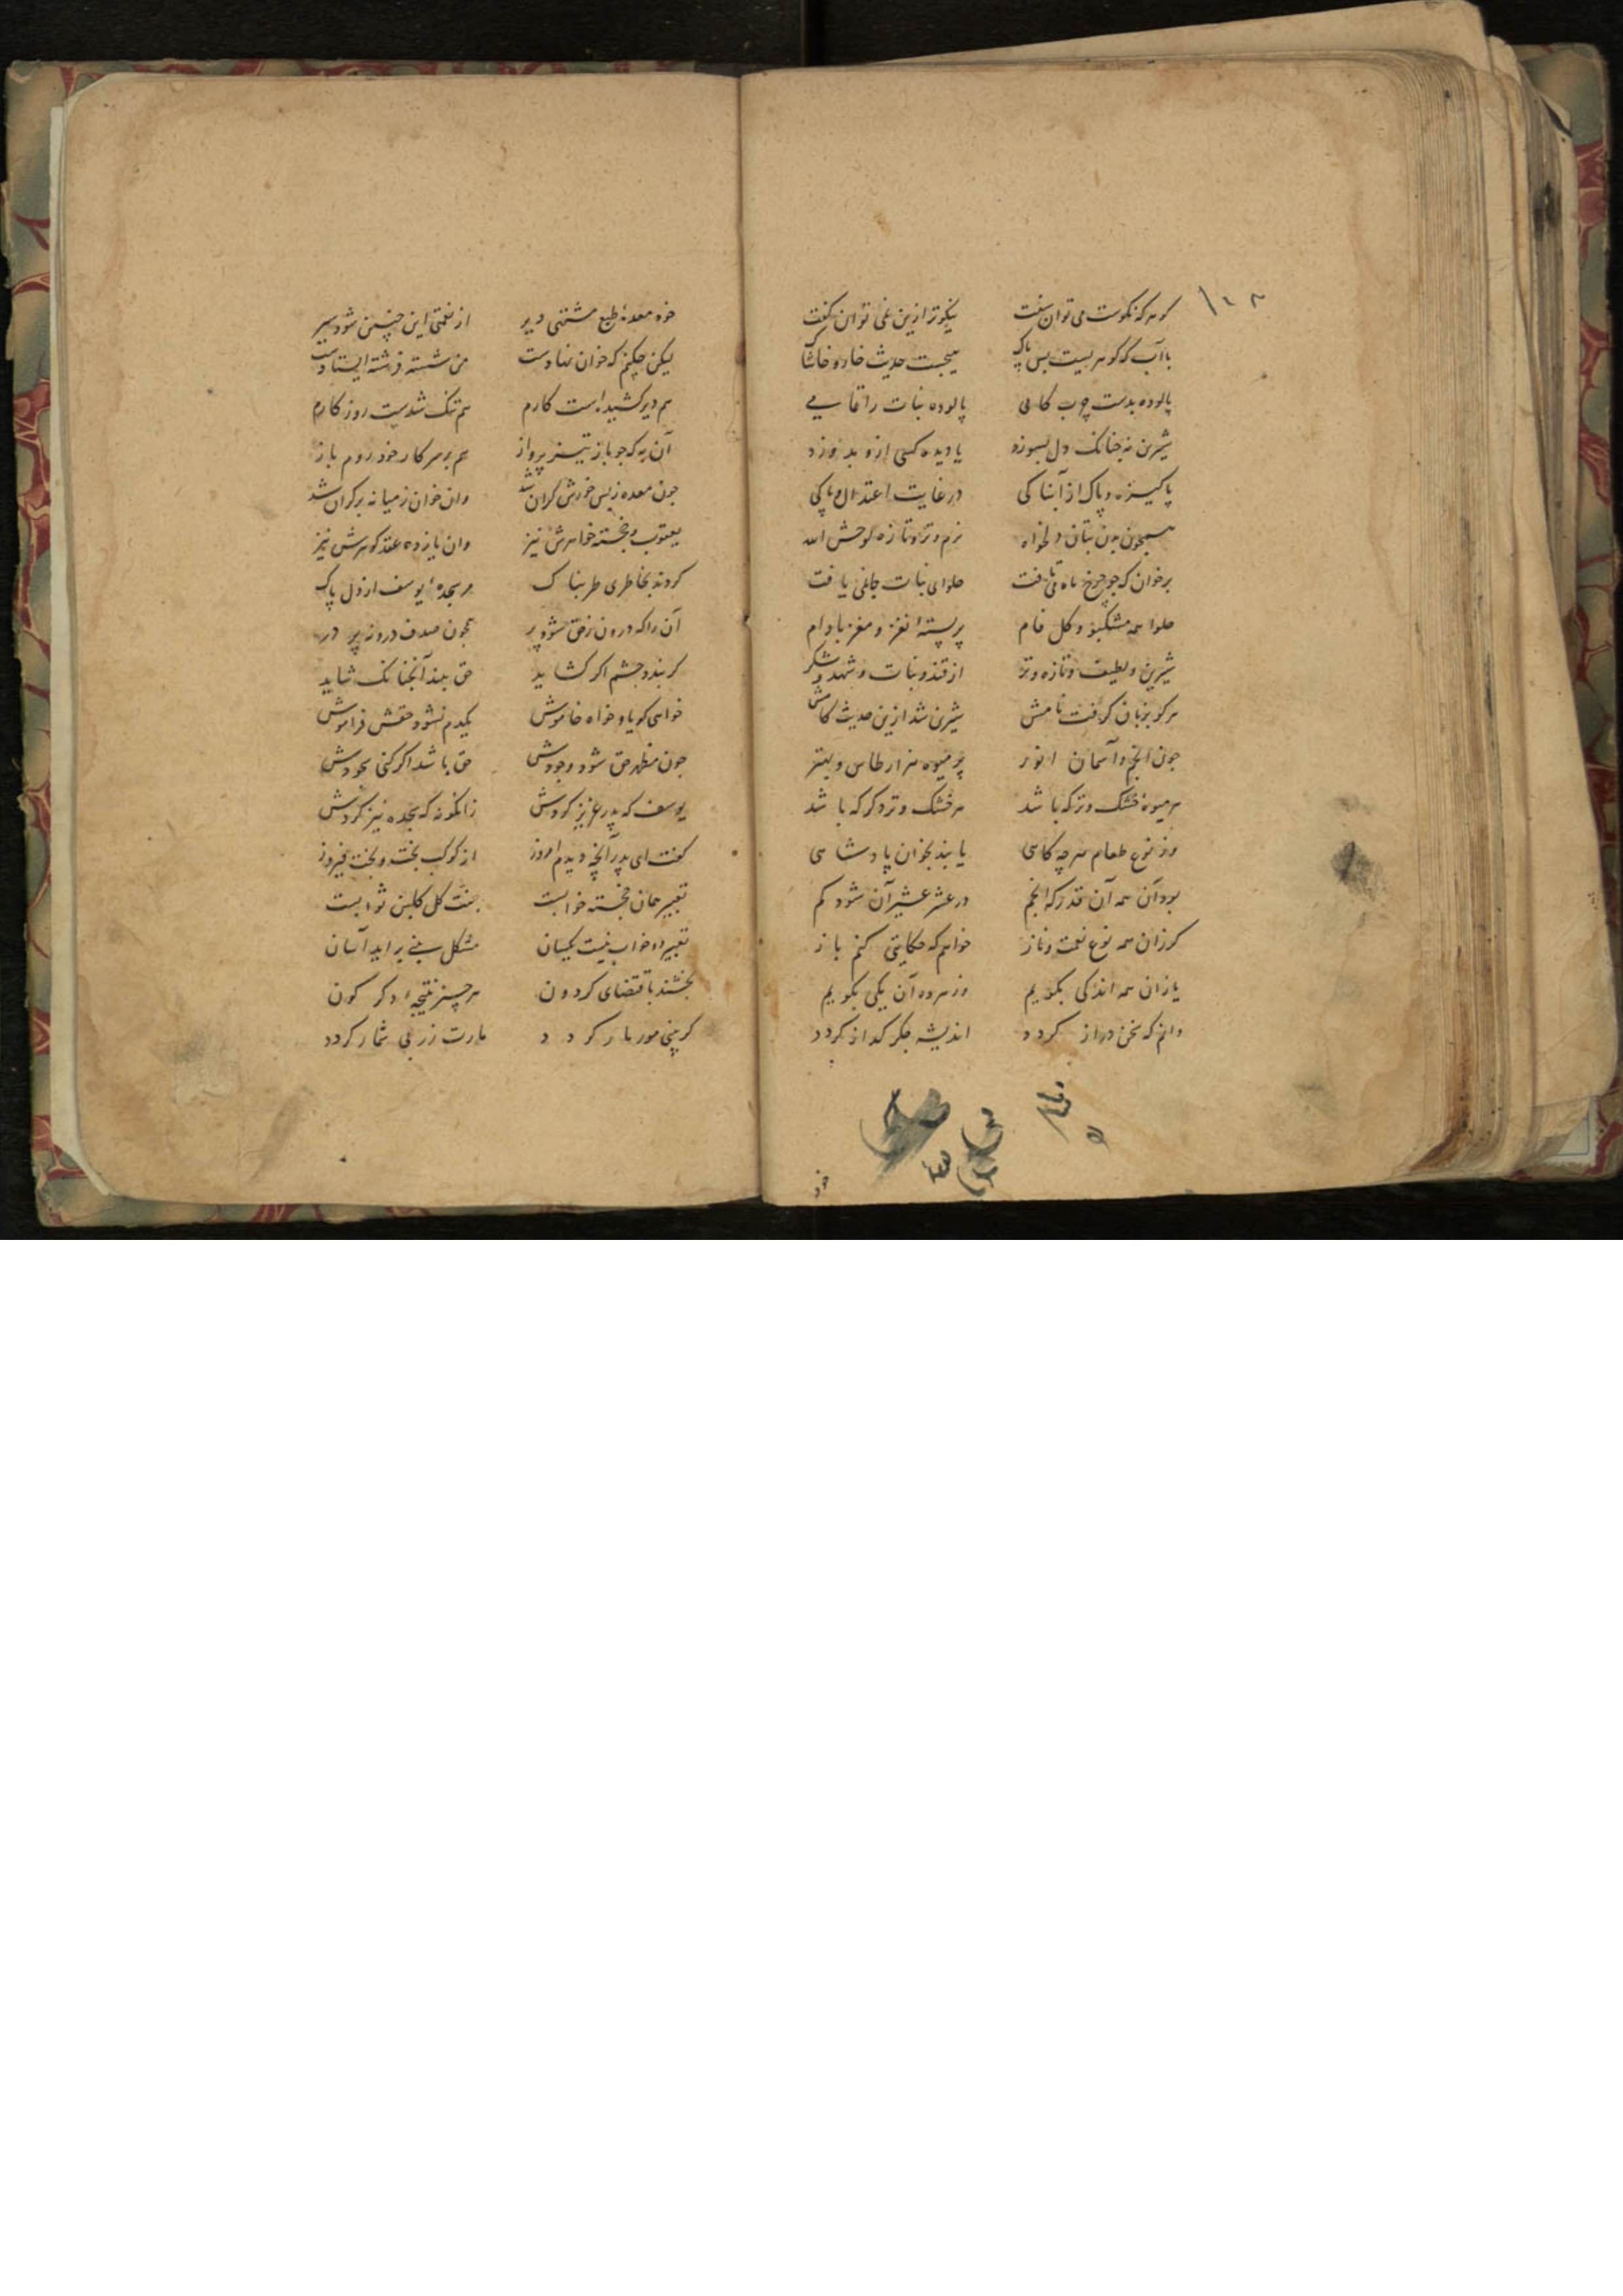 گوهر که نکوست می توان سفت نیکوتر ازین نمی توان گفت
با آب که گوهریست بس پاک هیچست حدیث خار و خاشاک
پالوده بدست چرب کامی پالوده نبات را تمامی
شیرین نه چنانک دل بسوزد یا دیده کسی ازو بدوزد
پاکیزه و پاک از آبناکی در غایت اعتدال و پاکی
همچون بدن بتان دلخواه نرم و تر و تازه لوحش الله
برخوان که چو چرخ ماه می تافت حلوای نبات جاغی یافت
حلوا همه مشکبو و گل فام پر پسته نغز و مغز بادام
شیرین و لطیف و تازه و تر از قند و نبات و شهد و شکر
هر کو بزبان گرفت نامش شیرین شد ازین حدیث کامش
چون انجم و آسمان انور پر میوه هزار طاس و
هر میوه خشک و تر که باشد هر خشک و تر دگر که باشد
وز نوع طعام هر چه کاهی یابند بخوان پادشاهی
بود آن همه آن قدر که انجم در عشر عشیر آن شود گم
کر زان همه نوع نعمت و ناز خواهم که حکایتی کنم باز
یا زان همه اندکی بگویم وز هر ده آن یکی بگویم
دانم که سخن دراز گردد اندیشه جگر گداز گردد
خود
خود معده طبع مشتهی دیر از نعمتی این چنین شود سیر
لیکن چکنم که خوان نهادست من شسته فرشته ایستادست
هم دیر کشیده است کارم هم تنگ شدست روزگارم
آن به که چو باز تیز پرواز هم بر سر کار خود روم باز
چون معده ز بس خورش گران شد وان خوان ز میانه بر کران شد
یعقوب و خجسته خواهرش نیز وان یازده عقد گوهرش نیز
کردند بخاطری طربناک مر سجده یوسف از دل پاک
آن را که درون ز حق شود پر همچون صدف درونه پر در
گر بندد چشم اگر گشاید حق بیند آنچنانک شاید
خواهی گویا و خواه خاموش یکدم نشود حقش فراموش
چون مظهر حق شود وجودش حق باشد اگر کنی سجودش
یوسف که پدر عزیز کردش زانگونه که سجده نیز کردش
گفت ای پدر آنچه دیدم امروز از کوکب بخت و بخت فیروز
تعبیر همان خجسته خوابست گل گلبن ثوابست
تعبیر دو خواب نیست یکسان مشکل بینی براید آسان
بخشند باقتضای گردون هر چیز نتیجه دگر گون
گر بینی مور مار گردد مارت زر بی شمار گردد